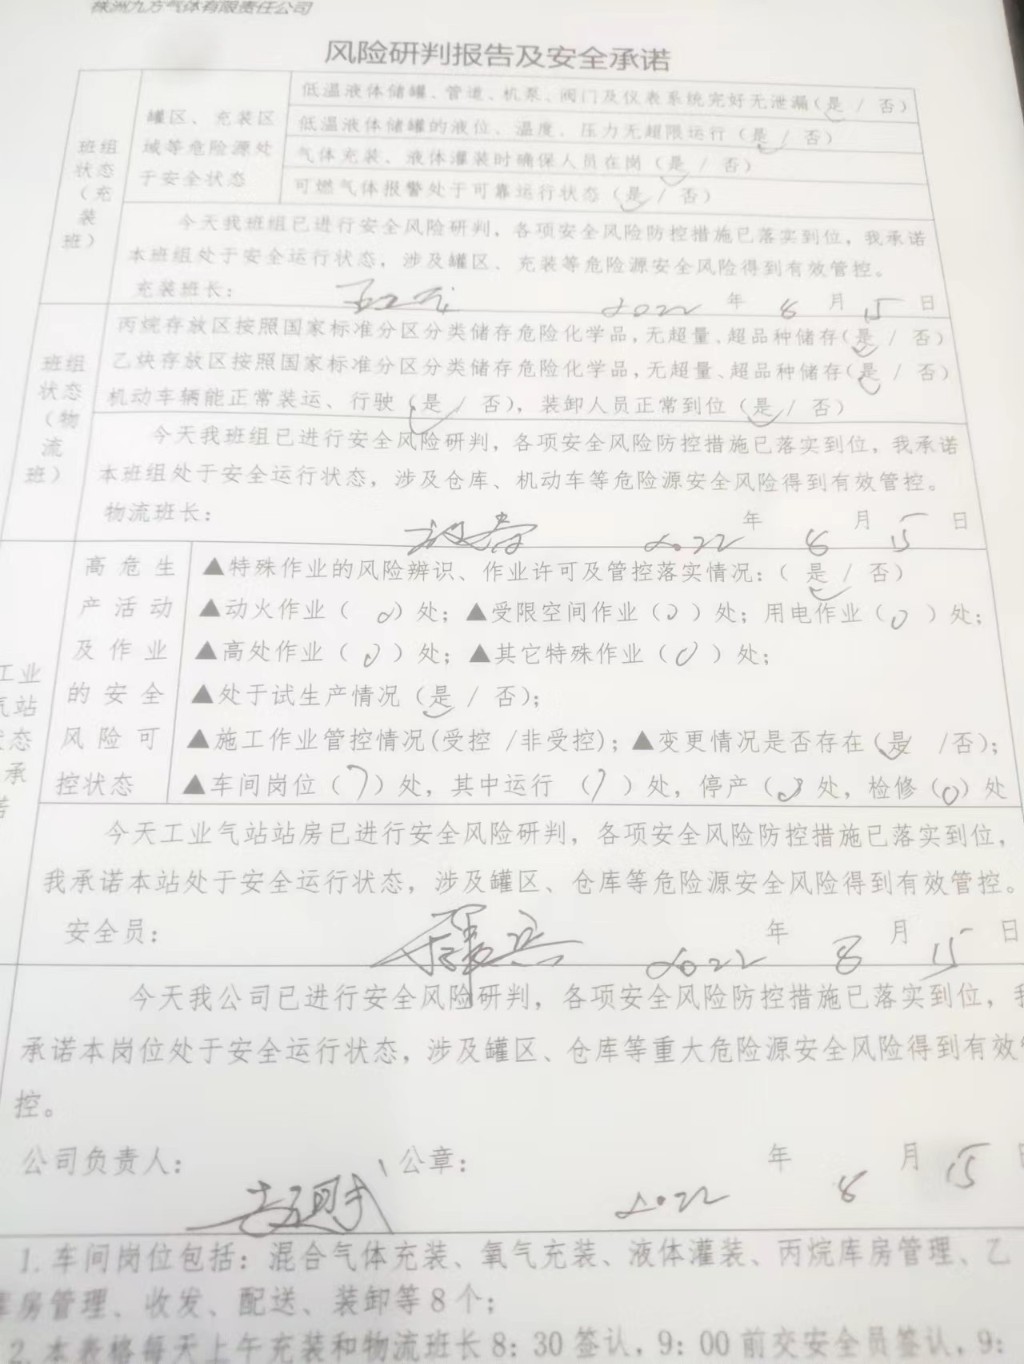 株洲九方气体有限责任公司
风险研判报告及安全承诺
班组
状态
（充
装
班）
罐区、充装区
域等危险源处
于安全状态
低温液体储罐、管道、机泵、阀门及仪表系统完好无泄漏(是 / 否)
低温液体储罐的液位、温度、压力无超限运行（是 / 否）
气体充装、液体灌装时确保人员在岗（是 / 否）
可燃气体报警处于可靠运行状态（是 / 否）
今天我班组已进行安全风险研判，各项安全风险防控措施已落实到位，我承诺
本班组处于安全运行状态，涉及罐区、充装等危险源安全风险得到有效管控。
充装班长： 2022 年 8 月 15 日
班组
状态
（物
流
班）
丙烷存放区按照国家标准分区分类储存危险化学品，无超量、超品种储存(是 / 否)
乙炔存放区按照国家标准分区分类储存危险化学品，无超量、超品种储存(是 / 否)
机动车辆能正常装运、行驶（是 / 否），装卸人员正常到位（是 / 否）
今天我班组已进行安全风险研判，各项安全风险防控措施已落实到位，我承诺
本班组处于安全运行状态，涉及仓库、机动车等危险源安全风险得到有效管控。
物流班长： 2022 年 8 月 15 日
工业
气站
状态
承
诺
高危生
产活动
及作业
的安全
风险可
控状态
▲特殊作业的风险辨识、作业许可及管控落实情况：（ 是 / 否）
▲动火作业（ 0）处；▲受限空间作业（0）处；用电作业（0 ）处；
▲高处作业（ 0 ）处；▲其它特殊作业（0 ）处；
▲处于试生产情况（是 / 否）；
▲施工作业管控情况(受控 /非受控)；▲变更情况是否存在（是 /否)；
▲车间岗位（7）处，其中运行 （7 ）处，停产（0）处，检修（0）处
今天工业气站站房已进行安全风险研判，各项安全风险防控措施已落实到位，
我承诺本站处于安全运行状态，涉及罐区、仓库等危险源安全风险得到有效管控。
安全员： 2022 年 8 月 15 日
今天我公司已进行安全风险研判，各项安全风险防控措施已落实到位，我
承诺本岗位处于安全运行状态，涉及罐区、仓库等重大危险源安全风险得到有效管
控。
公司负责人： 公章： 2022 年 8 月 15 日
1. 车间岗位包括：混合气体充装、氧气充装、液体灌装、丙烷库房管理、乙
库房管理、收发、配送、装卸等8个；
2. 本表格每天上午充装和物流班长8：30签认，9：00前交安全员签认，9：